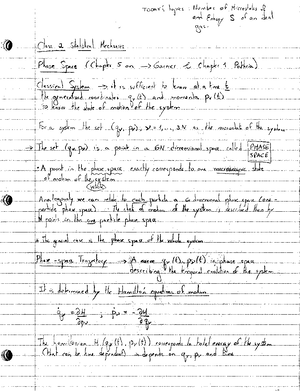 Today's topics: Number of Microstates Ω
and Entropy S of an ideal
gas.
Class 2 Statistical Mechanics
Phase Space (Chapter 5 on → Greiner & Chapter 1 Pathria)
Classical System → it is sufficient to know at a time t
the generalized coordinates qᵥ(t) and momenta pᵥ(t)
to know the state of motion of the system
For a system the set (qᵥ, pᵥ), ν = 1, ... 3N as the microstate of the system
→ The set (qᵥ, pᵥ) is a point in a 6N-dimensional space called PHASE SPACE
• A point in the phase space exactly corresponds to one state
of motion of the system
Analogously we can relate to each particle a 6 dimensional phase space (one-
particle phase space) . The state of motion of the system is described then by
N points in the one particle phase space
• The general case is the phase space of the whole system
Phase-space Trajectory → A curve qᵥ(t), pᵥ(t) in phase space
describing the temporal evolution of the system
It is determined by the Hamilton equations of motion
q̇ᵥ = ∂H/∂pᵥ ; ṗᵥ = -∂H/∂qᵥ
The hamiltonian H (qᵥ(t), pᵥ(t)) corresponds to total energy of the system
(that can be time dependent) is depends on qᵥ, pᵥ and time